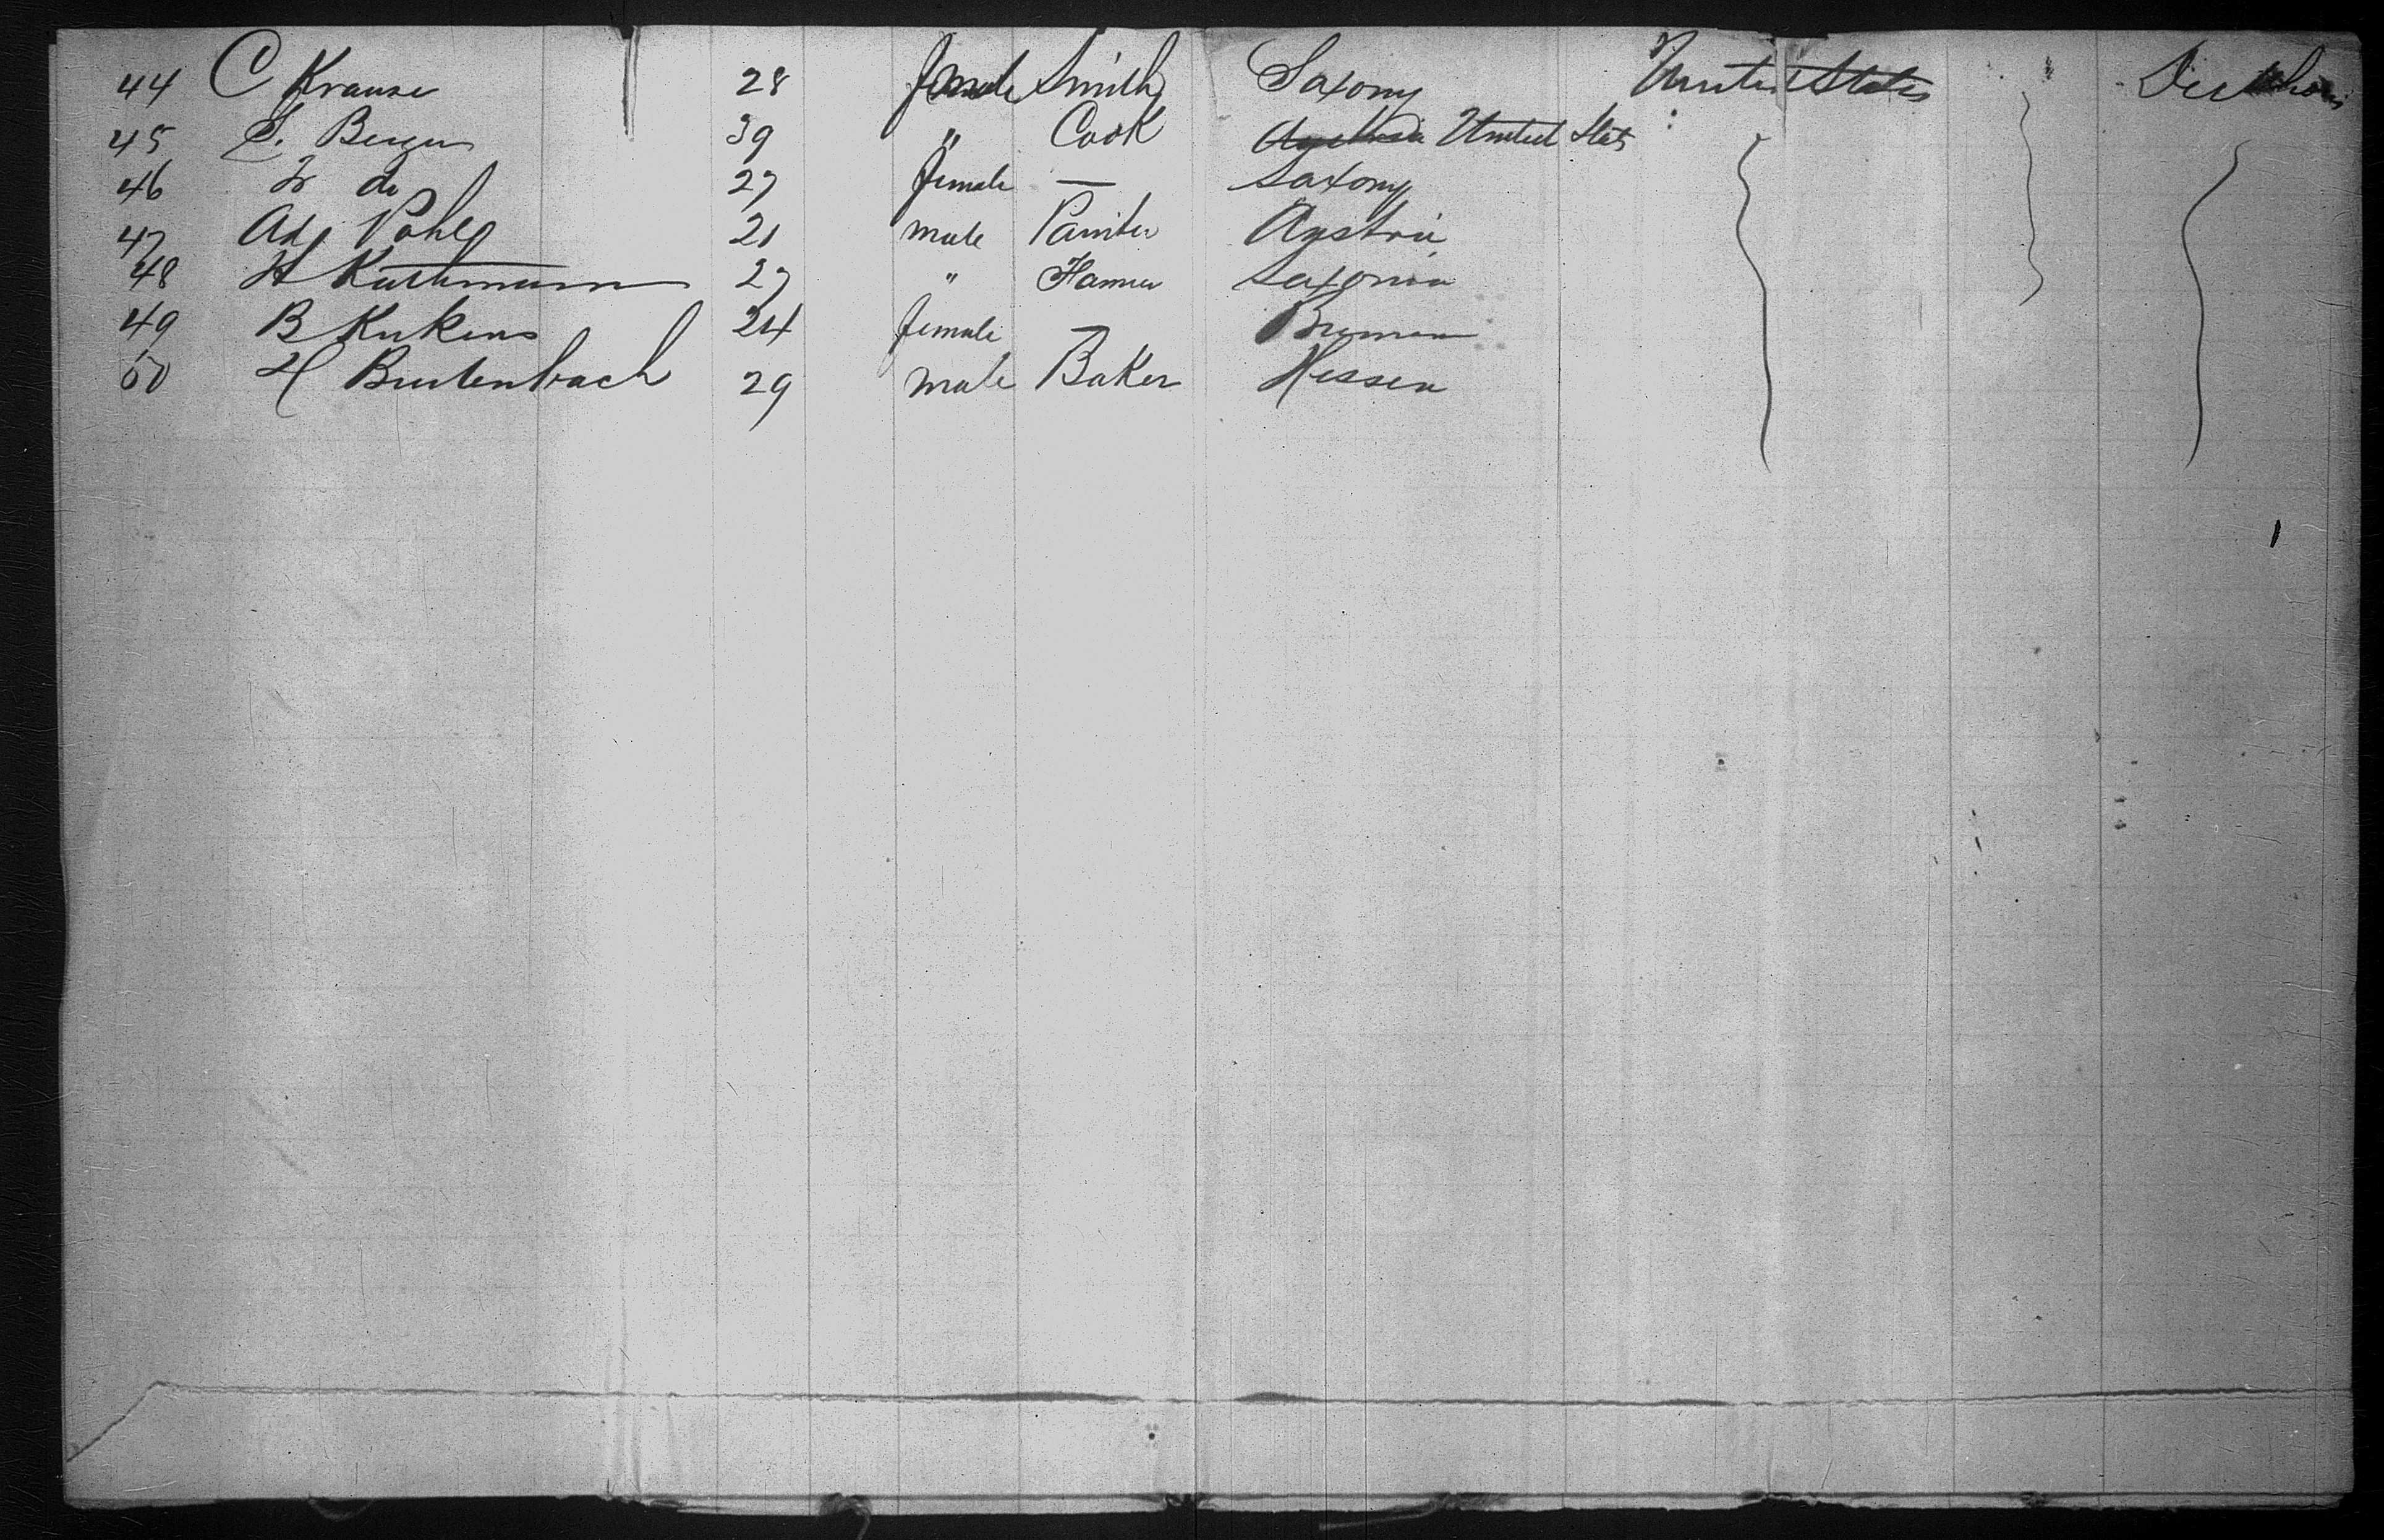 44 C Krause 28 male Smith Saxony United States
45 S. Berger 39 " Cook United Stats
46 Fr do 27 female — Saxony
47 Ad. Pohl 21 male Painter Austria
48 H Kuthmann 27 " Saxonia
49 B Kukens 24 female — Bremen
50 H Bustenbach 29 male Baker Hessen